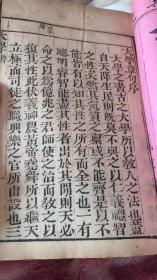 大學章句序
大學之書古之大學所以教人之法也蓋
自天降生民則既莫不與之以仁義禮智
之性矣然其氣質之稟或不能齊是以不
能皆有以知其性之所有而全之也一有
聰明睿智能盡其性者出於其間則天必
命之以為億兆之君師使之治而教之以
復其性此伏羲神農黃帝堯舜所以繼天
立極而司徒之職典樂之官所由設也三
大學 序